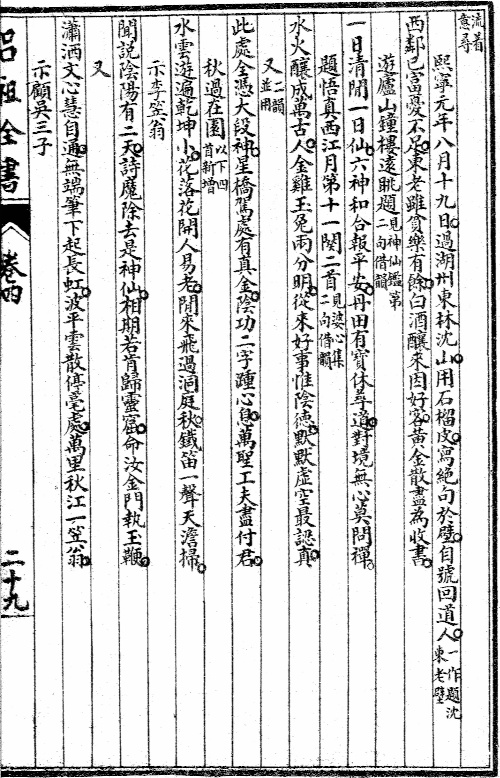 流着
意尋
熙寧元年八月十九日過湖州東林沈山用石榴皮寫絶句於壁自號回道人一作題沈東老壁
西鄰已富憂不足東老雖貧樂有餘白酒釀來因好客黄金散盡為收書
遊廬山鐘樓遠眺題見神仙鑑第二句借韻
一日清閒一日仙六神和合報平安丹田有寶休尋道對境無心莫問禪
題悟真西江月第十一闋二首見婆心集二句借韻
水火釀成萬古人金雞玉兔兩分明從來好事惟陰德默默虛空最認真
又二韻並用
此處全憑大段神星橋駕處有真金陰功二字踵心息萬聖工夫盡付君
秋過在園以下四首新增
水雲遊遍乾坤小花落花開人易老閒來飛過洞庭秋鐵笛一聲天澹掃
示李笠翁
聞説陰陽有二天詩魔除去是神仙相期若肯歸靈窟命汝金門執玉鞭
又
瀟洒文心慧自通無端筆下起長虹波平雲散停毫處萬里秋江一笠翁
示顧吳三子
呂祖全書
卷四
二十九